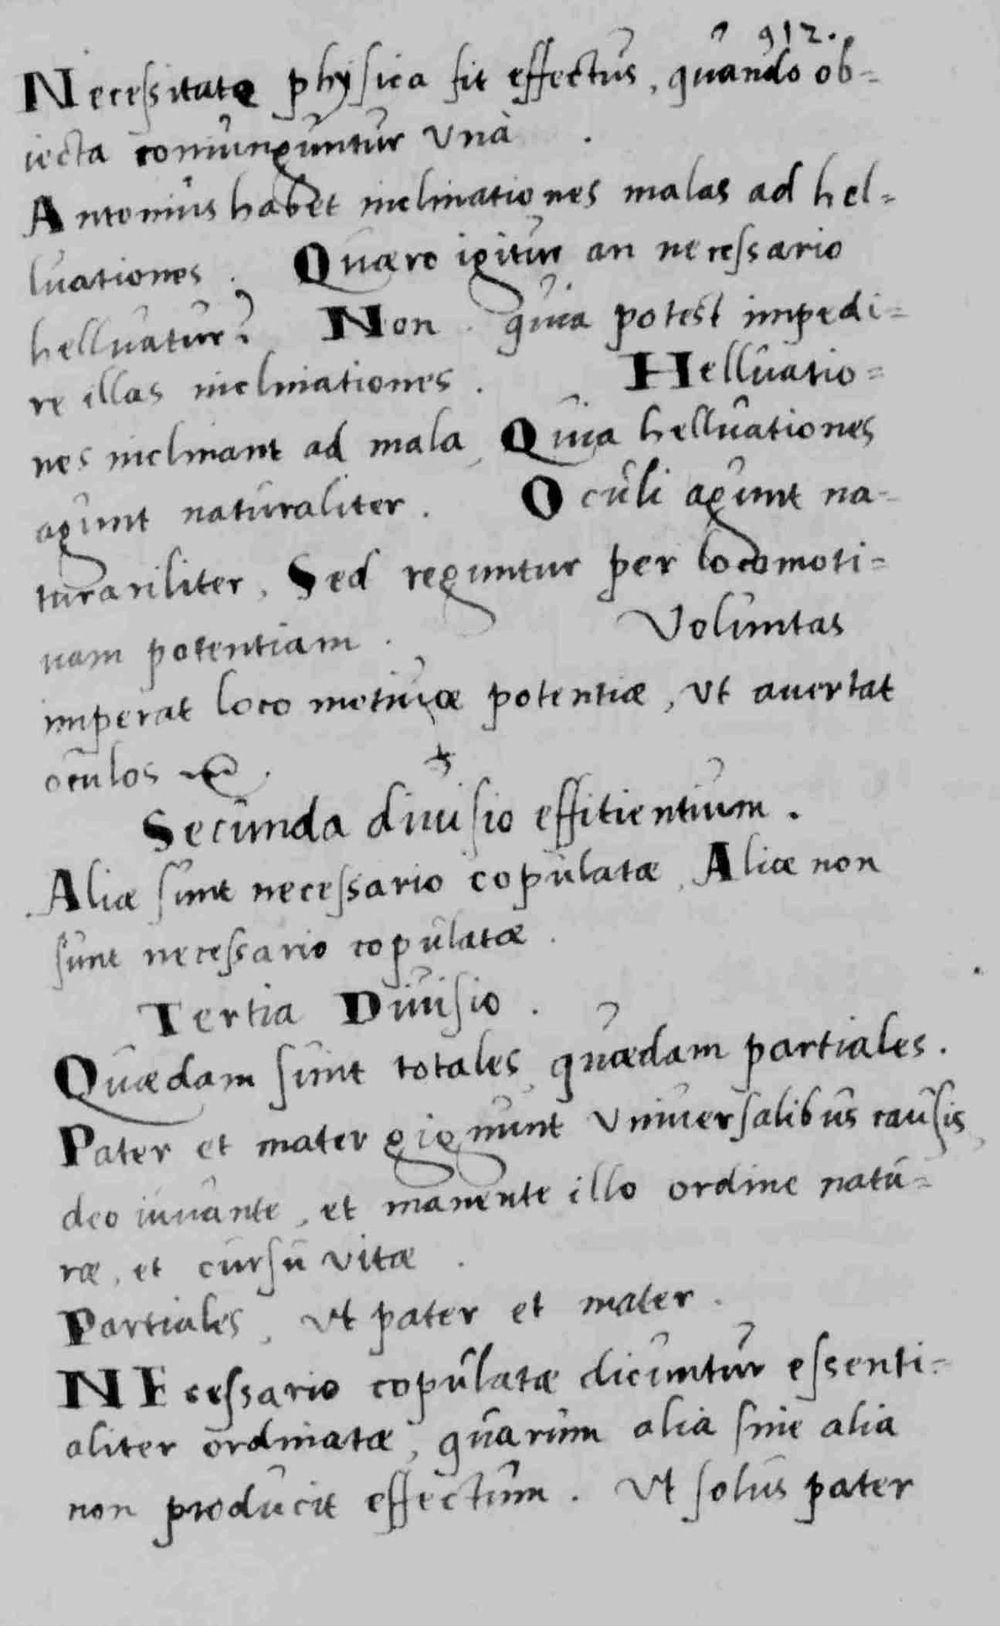 912.
Necessitate physica fit effectus, quando ob=
iecta coniunguntur unà .
Antonius habet inclinationes malas ad hel=
luationes . Quæro igitur an necessario
helluatur? Non . quia potest impedi=
re illas inclinationes . Helluatio=
nes inclinant ad mala, Quia helluationes
agunt naturaliter . Oculi agunt na=
turariliter, Sed reguntur per locomoti=
uam potentiam . Voluntas
imperat loco motiuæ potentiæ, ut auertat
oculos
Secunda diuisio effitientium .
Aliæ sunt necessario copulatæ, Aliæ non
sunt necessario copulatæ .
Tertia Diuisio .
Quædam sunt totales, quædam partiales .
Pater et mater gignunt Vniuersalibus causis,
deo iuuante, et manente illo ordine natu=
ræ, et cursu vitæ .
Partiales, Ut pater et mater .
NEcessario copulatæ dicuntur essenti=
aliter ordinatæ, quarum alia sine alia
non producit effectum . Ut solus pater